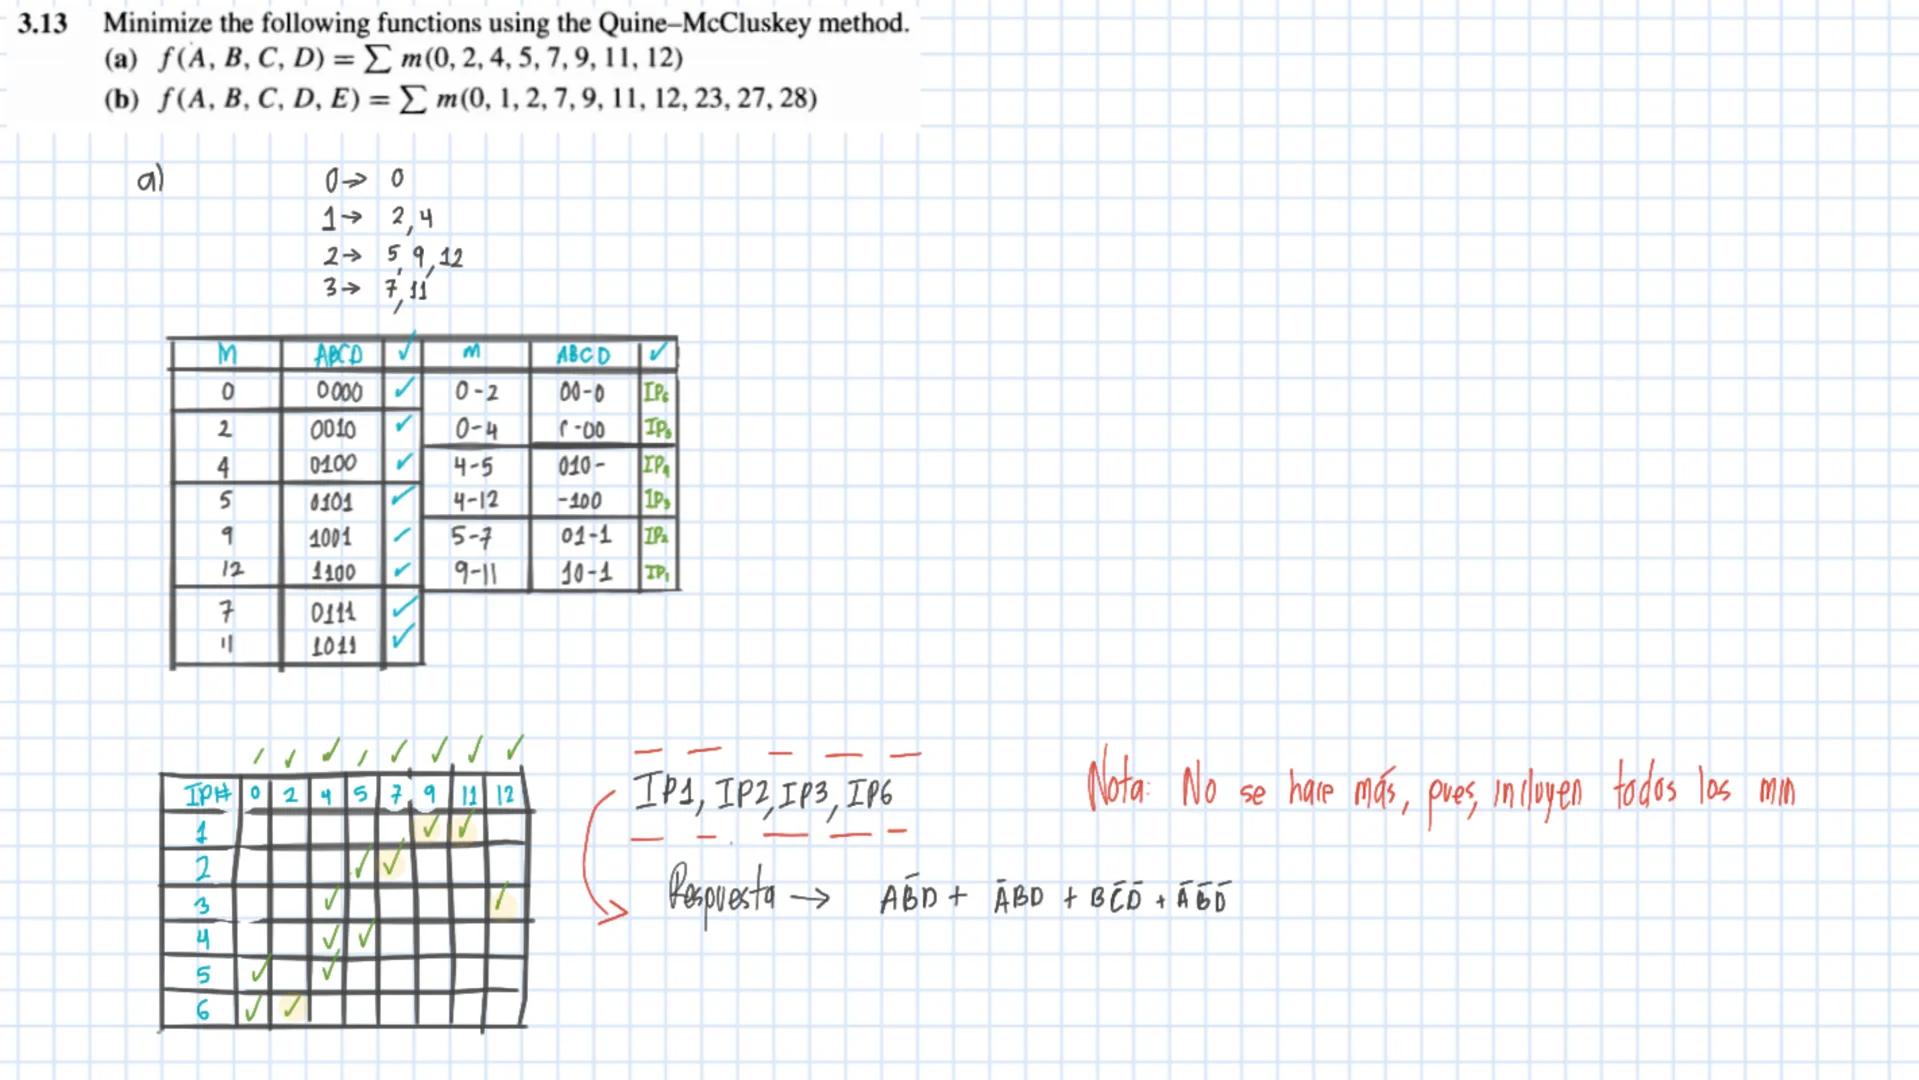 3.13 Minimize the following functions using the Quine–McCluskey method.
(a) f(A, B, C, D) = ∑ m(0, 2, 4, 5, 7, 9, 11, 12)
(b) f(A, B, C, D, E) = ∑ m(0, 1, 2, 7, 9, 11, 12, 23, 27, 28)
a)
0→ 0
1→ 2,4
2→ 5,9,12
3→ 7,11
M ABCD ✓ m ABCD ✓
0 0000 ✓ 0-2 00-0 IP6
2 0010 ✓ 0-4 -00 IP5
4 0100 ✓ 4-5 010- IP4
5 0101 ✓ 4-12 -100 IP3
9 1001 ✓ 5-7 01-1 IP2
12 1100 ✓ 9-11 10-1 IP1
7 0111 ✓
11 1011 ✓
✓ ✓ ✓ ✓ ✓ ✓ ✓ ✓
IP# 0 2 4 5 7 9 11 12
1 ✓ ✓
2 ✓ ✓
3 ✓ ✓
4 ✓ ✓
5 ✓ ✓
6 ✓ ✓
IP1, IP2, IP3, IP6
Respuesta → AB̄D + ĀBD + BC̄D̄ + ĀB̄D̄
Nota: No se hace más, pues, incluyen todos los min